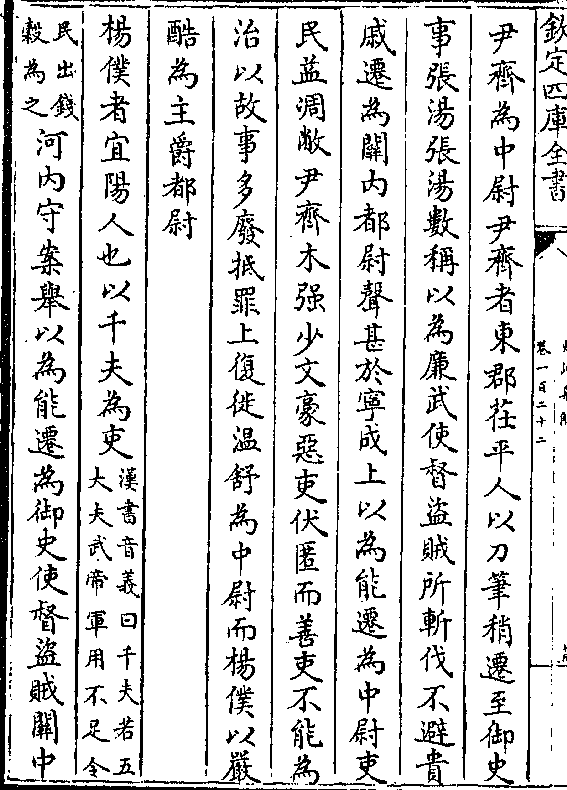 欽定四庫全書
卷一百二十二
尹齊為中尉尹齊者東郡茌平人以刀筆稍遷至御史
事張湯張湯數稱以為廉武使督盜賊所斬伐不避貴
戚遷為關内都尉聲甚於寧成上以為能遷為中尉吏
民益凋敝尹齊木强少文豪惡吏伏匿而善吏不能為
治以故事多廢抵罪上復徙温舒為中尉而楊僕以嚴
酷為主爵都尉
楊僕者宜陽人也以千夫為吏漢書音義曰千夫若五大夫武帝軍用不足令
民出錢穀為之河内守案舉以為能遷為御史使督盜賊關中